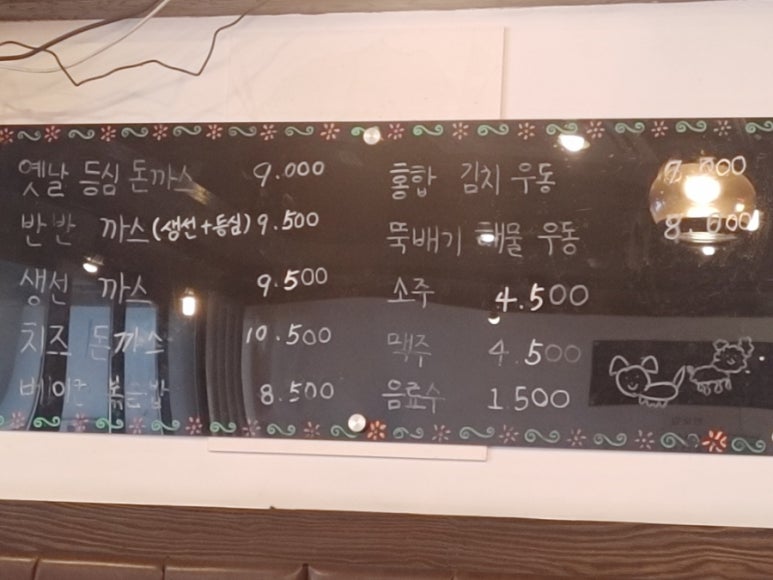 옛날 등심 돈까스 9.000
반반 까스(생선+등심) 9.500
생선 까스 9.500
치즈 돈까스 10.500
베이컨 볶음밥 8.500
홍합 김치 우동
뚝배기 해물 우동 8.000
소주 4.500
맥주 4.500
음료수 1.500